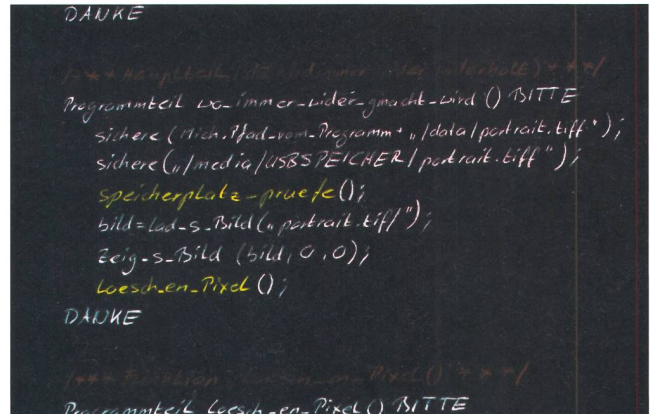 DANKE
/*** Hauptteil (da immer wider widerholt) ***/
Programmteil wo_immer_wider_gmacht_wird () BITTE
sichere (Mich.Pfad_vom_Programm + „/data/portrait.tiff");
sichere („/media/USBSPEICHER/portrait.tiff");
speicherplatz_pruefe();
bild = lad_s_Bild(„portrait.tiff");
zeig_s_Bild (bild, 0, 0);
loesch_en_Pixel ();
DANKE
/*** Funktion loesch_en_Pixel() ***/
Programmteil loesch_en_Pixel () BITTE